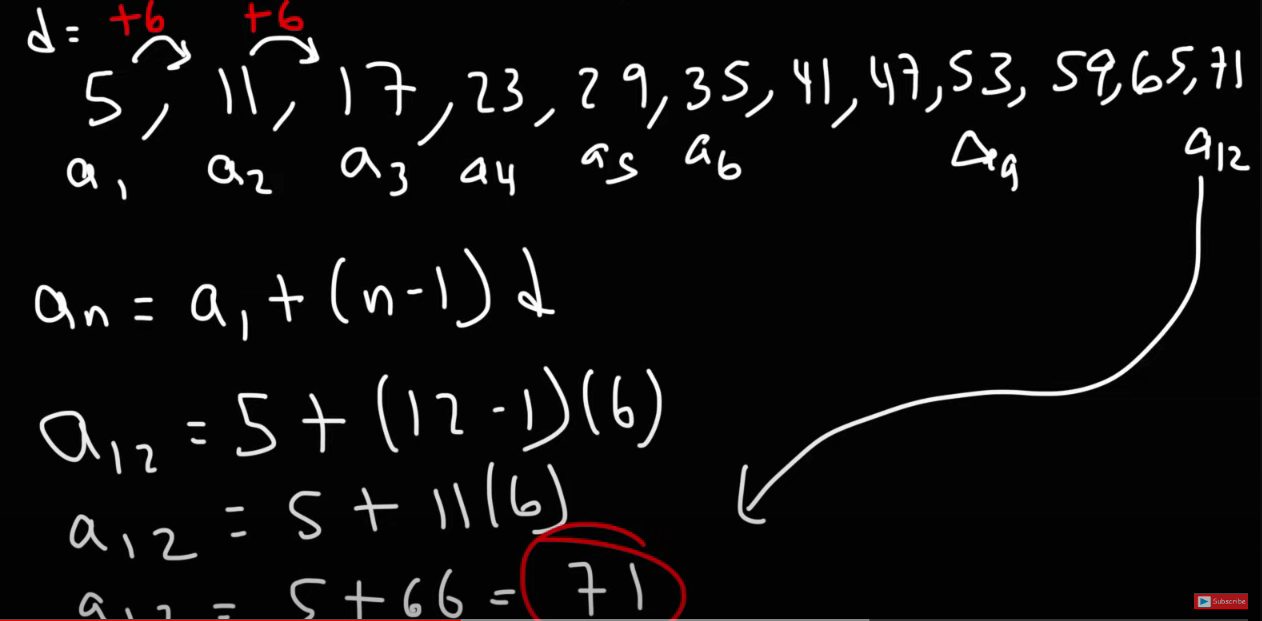 +6 +6
d =
5, 11, 17, 23, 29, 35, 41, 47, 53, 59, 65, 71
a₁ a₂ a₃ a₄ a₅ a₆ a₉ a₁₂
aₙ = a₁ + (n-1) d
a₁₂ = 5 + (12 - 1)(6)
a₁₂ = 5 + 11(6)
a₁₂ = 5 + 66 = 71
Subscribe